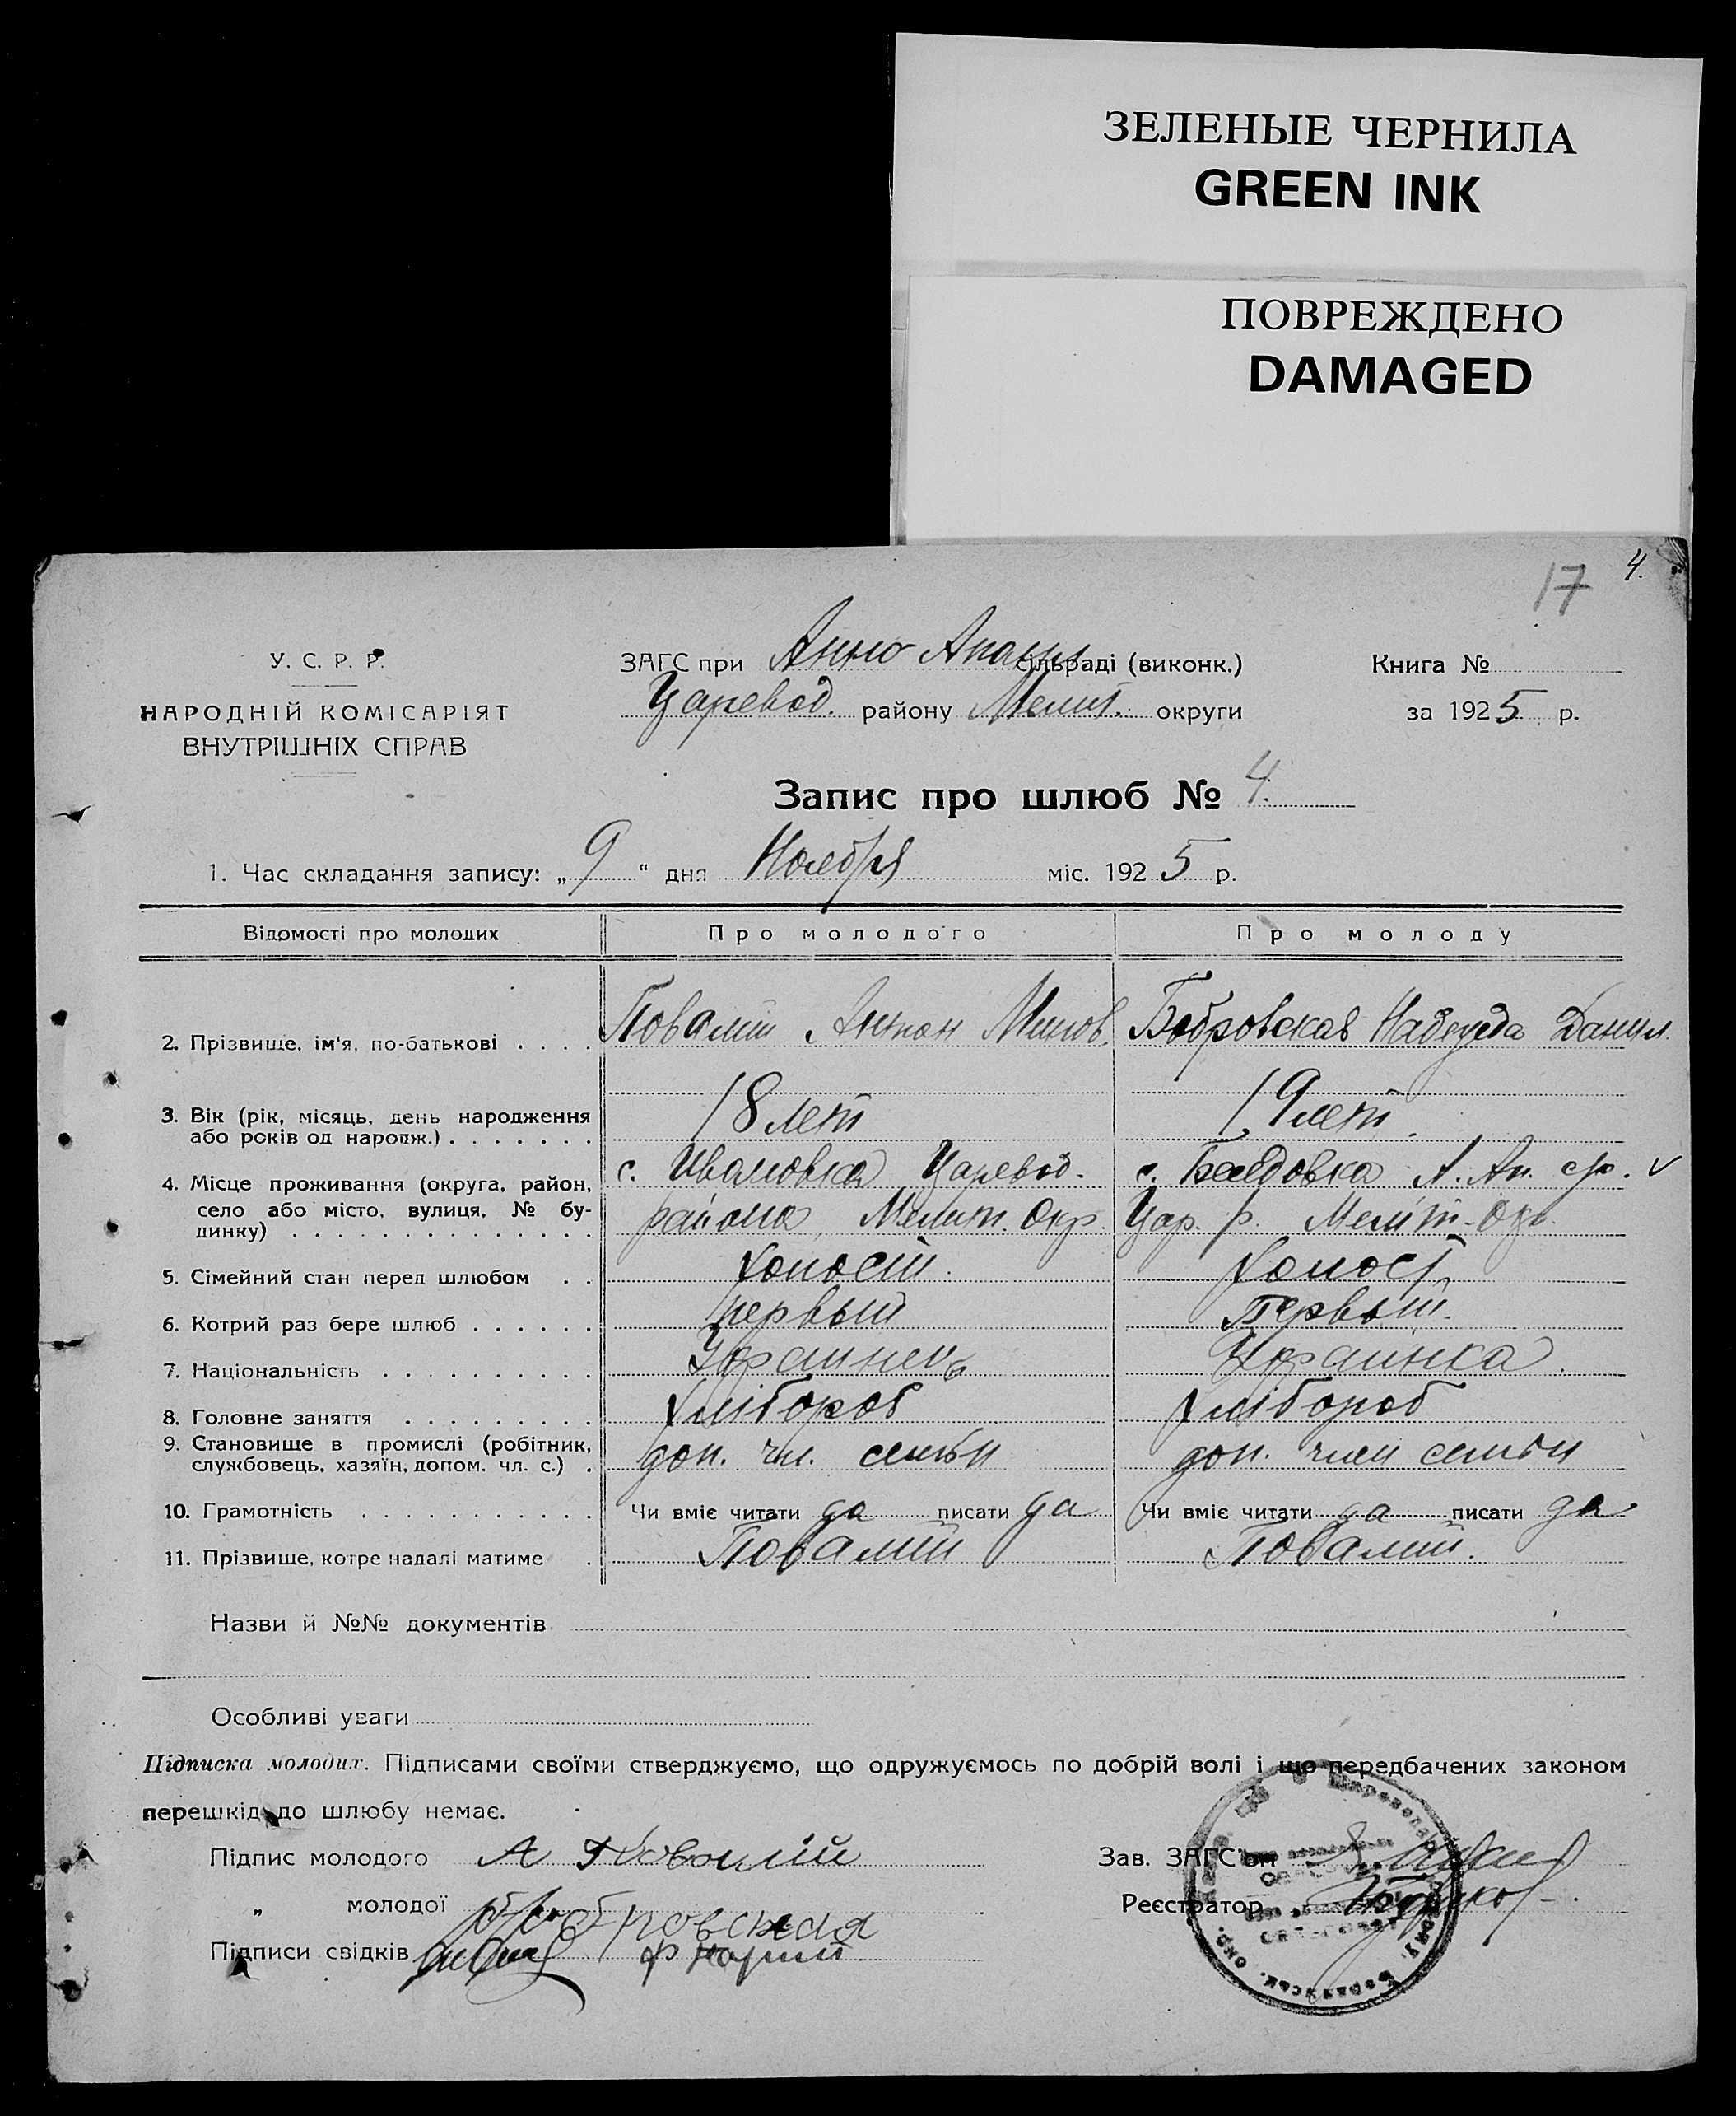 ЗЕЛЕНЫЕ ЧЕРНИЛА
GREEN INK
ПОВРЕЖДЕНО
DAMAGED
17 4.
У. С. Р. Р.
НАРОДНІЙ КОМІСАРІЯТ
ВНУТРІШНІХ СПРАВ
ЗАГС при Анно сільраді (виконк.)
Царевод. району Меліт. округи
Книга №
за 1925 р.
Запис про шлюб № 4.
1. Час складання запису: „9“ дня Ноября міс. 1925 р.
Відомості про молодих Про молодого Про молоду
2. Прізвище, ім'я, по-батькові . . . . Повалий Антон Бобровская Надежда Данил.
3. Вік (рік, місяць, день народження 18 лет 19 лет.
або років од народж.) . . . . . . .
4. Місце проживання (округа, район, с. Ивановка Царевод. с. А. Ан. с/р. v
село або місто, вулиця, № бу- района, Мелит. Окр. Цар. р. Меліт. Окр.
динку) . . . . . . . . . . . . . .
5. Сімейний стан перед шлюбом . . холост. холост
6. Котрий раз бере шлюб . . . . . . первый Первый.
7. Національність . . . . . . . . . . Украинец Украінка.
8. Головне заняття . . . . . . . . . хлібороб хлібороб
9. Становище в промислі (робітник, доп. чл. семьи доп. член семьи
службовець, хазяїн, допом. чл. с.) .
10. Грамотність . . . . . . . . . . . Чи вміє читати да писати да Чи вміє читати да писати да
11. Прізвище, котре надалі матиме . Повалий Повалий.
Назви й №№ документів
Особливі уваги
Підписка молодих. Підписами своїми стверджуємо, що одружуємось по добрій волі і що передбачених законом
перешкід до шлюбу немає.
Підпис молодого А Повалій
„ молодої Бобровская
Підписи свідків
Зав. ЗАГС'ом
Реєстратор